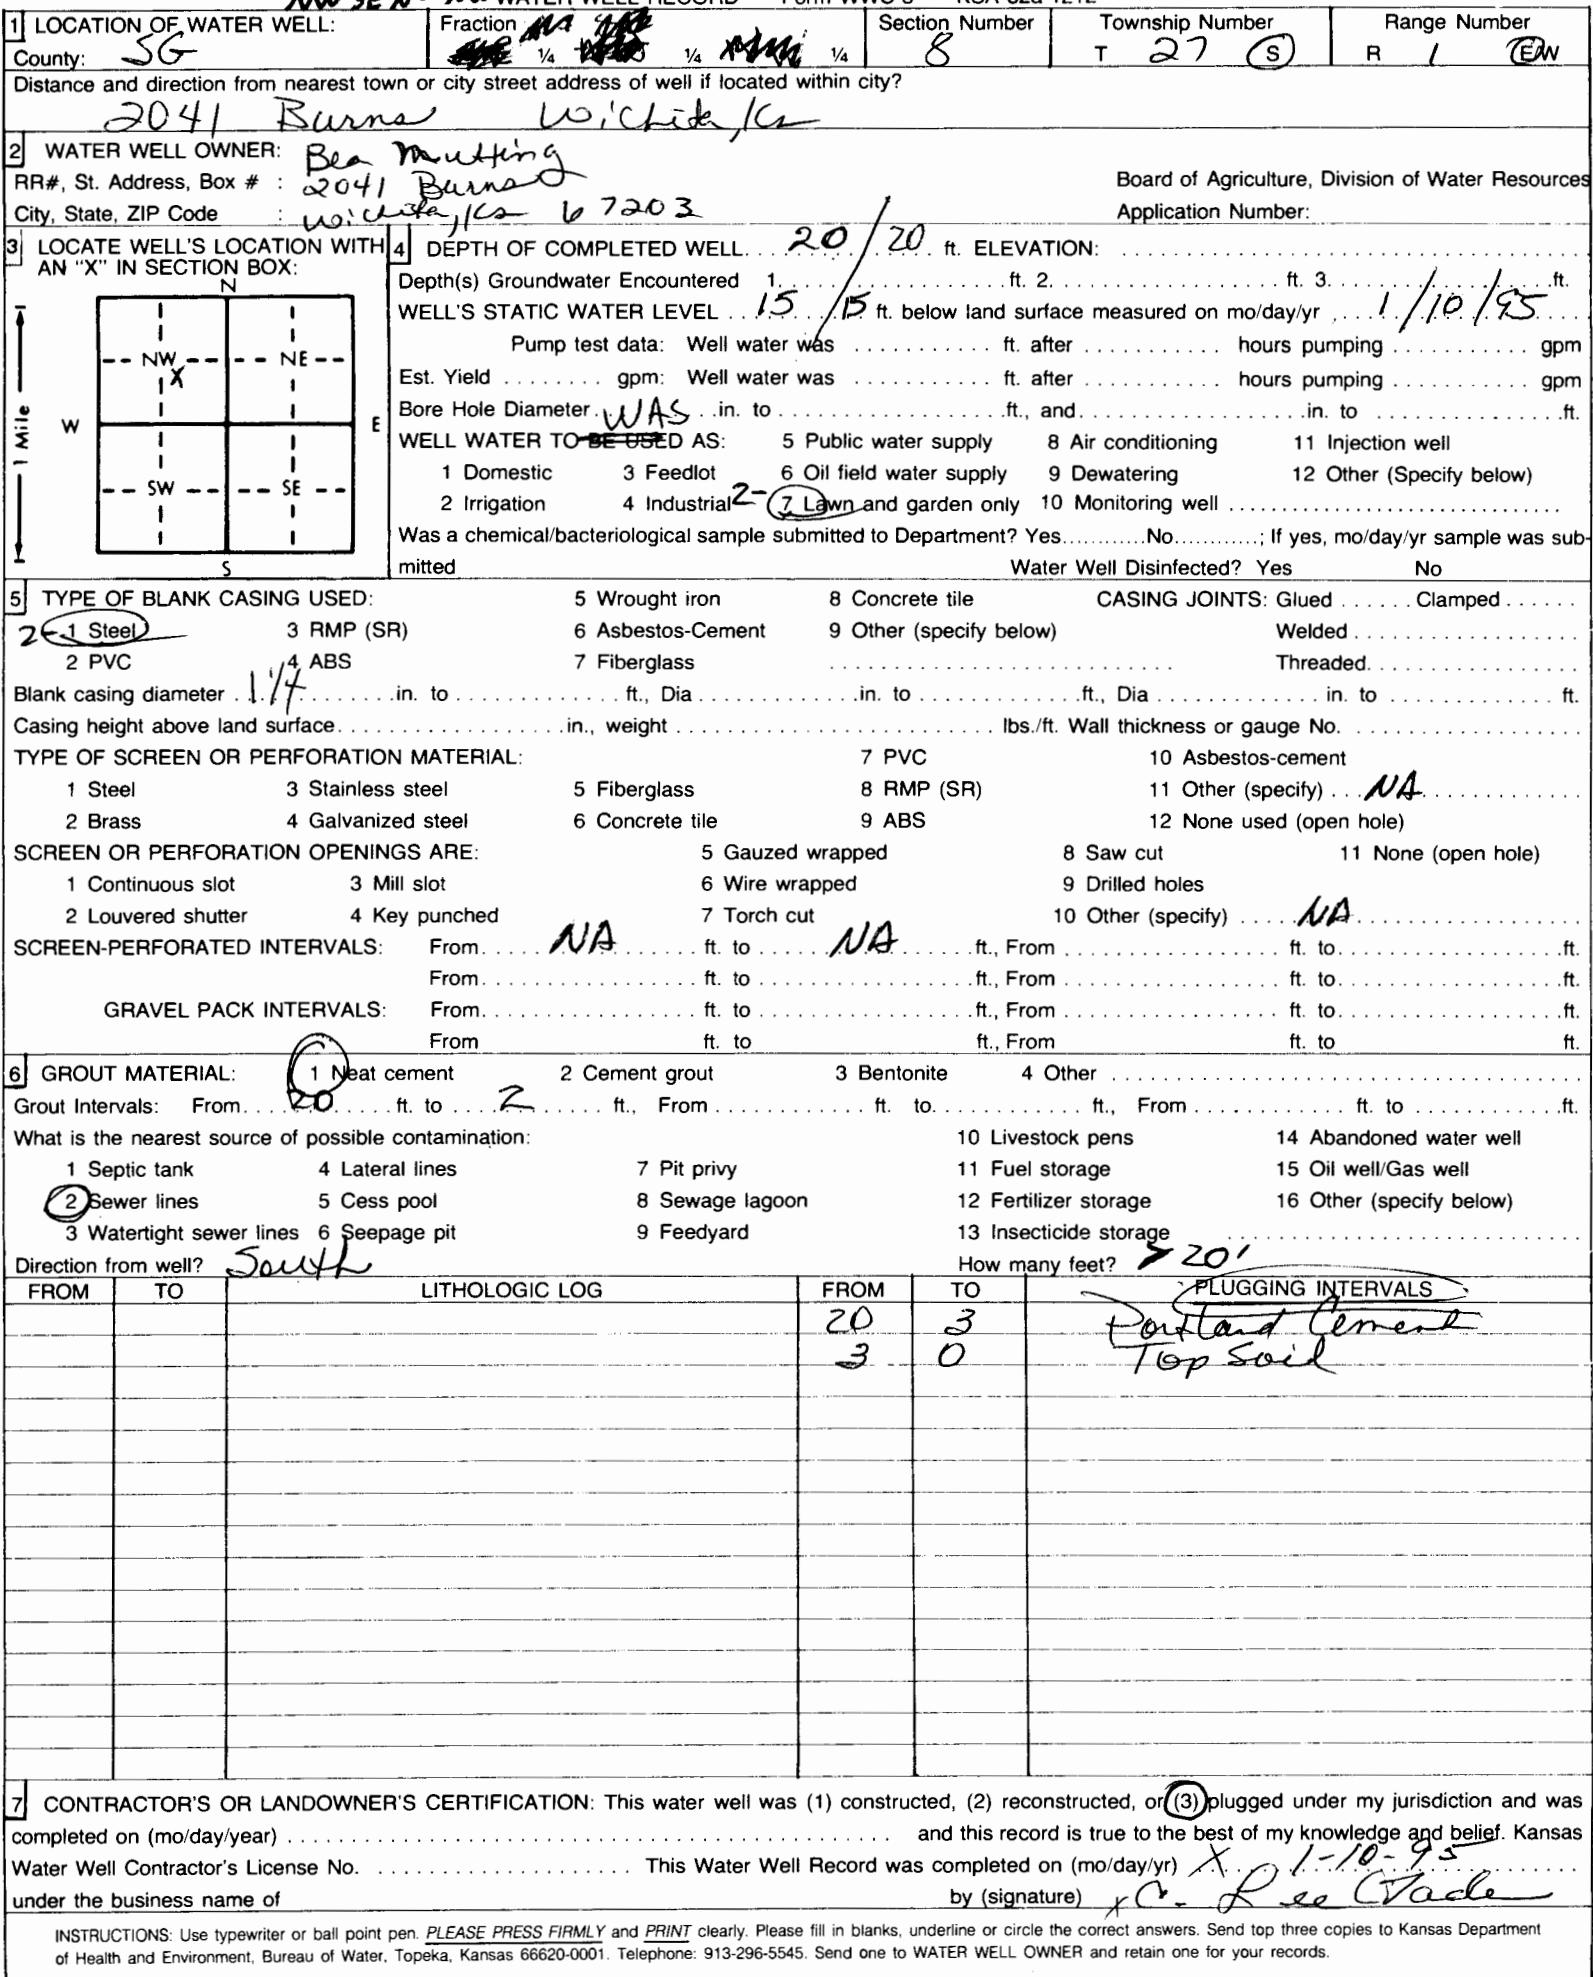 WATER WELL RECORD Form WWC-5 KSA 82a-1212
1 LOCATION OF WATER WELL: Fraction Section Number Township Number Range Number
County: SG ¼ ¼ ¼ 8 T 27 S R 1 E/W
Distance and direction from nearest town or city street address of well if located within city?
2041 Burns Wichita, Ks
2 WATER WELL OWNER: Bea Mutting
RR#, St. Address, Box # : 2041 Burns Board of Agriculture, Division of Water Resources
City, State, ZIP Code : Wichita, Ks 67203 Application Number:
3 LOCATE WELL'S LOCATION WITH AN "X" IN SECTION BOX:
N
NW NE
X
W E
SW SE
S
1 Mile
4 DEPTH OF COMPLETED WELL 20 / 20 ft. ELEVATION:
Depth(s) Groundwater Encountered 1. ft. 2. ft. 3. ft.
WELL'S STATIC WATER LEVEL 15 / 15 ft. below land surface measured on mo/day/yr 1/10/95
Pump test data: Well water was ft. after hours pumping gpm
Est. Yield gpm: Well water was ft. after hours pumping gpm
Bore Hole Diameter in. to ft., and in. to ft.
WAS
WELL WATER TO BE USED AS: 5 Public water supply 8 Air conditioning 11 Injection well
1 Domestic 3 Feedlot 6 Oil field water supply 9 Dewatering 12 Other (Specify below)
2 Irrigation 4 Industrial 2- 7 Lawn and garden only 10 Monitoring well
Was a chemical/bacteriological sample submitted to Department? Yes No ; If yes, mo/day/yr sample was sub-
mitted Water Well Disinfected? Yes No
5 TYPE OF BLANK CASING USED: 5 Wrought iron 8 Concrete tile CASING JOINTS: Glued Clamped
2- 1 Steel 3 RMP (SR) 6 Asbestos-Cement 9 Other (specify below) Welded
2 PVC 4 ABS 7 Fiberglass Threaded
Blank casing diameter 1 1/4 in. to ft., Dia in. to ft., Dia in. to ft.
Casing height above land surface in., weight lbs./ft. Wall thickness or gauge No.
TYPE OF SCREEN OR PERFORATION MATERIAL: 7 PVC 10 Asbestos-cement
1 Steel 3 Stainless steel 5 Fiberglass 8 RMP (SR) 11 Other (specify) NA
2 Brass 4 Galvanized steel 6 Concrete tile 9 ABS 12 None used (open hole)
SCREEN OR PERFORATION OPENINGS ARE: 5 Gauzed wrapped 8 Saw cut 11 None (open hole)
1 Continuous slot 3 Mill slot 6 Wire wrapped 9 Drilled holes
2 Louvered shutter 4 Key punched 7 Torch cut 10 Other (specify) NA
SCREEN-PERFORATED INTERVALS: From NA ft. to NA ft., From ft. to ft.
From ft. to ft., From ft. to ft.
GRAVEL PACK INTERVALS: From ft. to ft., From ft. to ft.
From ft. to ft., From ft. to ft.
6 GROUT MATERIAL: 1 Neat cement 2 Cement grout 3 Bentonite 4 Other
Grout Intervals: From 20 ft. to 2 ft., From ft. to ft., From ft. to ft.
What is the nearest source of possible contamination: 10 Livestock pens 14 Abandoned water well
1 Septic tank 4 Lateral lines 7 Pit privy 11 Fuel storage 15 Oil well/Gas well
2 Sewer lines 5 Cess pool 8 Sewage lagoon 12 Fertilizer storage 16 Other (specify below)
3 Watertight sewer lines 6 Seepage pit 9 Feedyard 13 Insecticide storage
Direction from well? South How many feet? > 20'
FROM TO LITHOLOGIC LOG FROM TO PLUGGING INTERVALS
20 3 Portland Cement
3 0 Top Soil
7 CONTRACTOR'S OR LANDOWNER'S CERTIFICATION: This water well was (1) constructed, (2) reconstructed, or (3) plugged under my jurisdiction and was
completed on (mo/day/year) and this record is true to the best of my knowledge and belief. Kansas
Water Well Contractor's License No. This Water Well Record was completed on (mo/day/yr) X 1-10-95
under the business name of by (signature) x C. Lee
INSTRUCTIONS: Use typewriter or ball point pen. PLEASE PRESS FIRMLY and PRINT clearly. Please fill in blanks, underline or circle the correct answers. Send top three copies to Kansas Department
of Health and Environment, Bureau of Water, Topeka, Kansas 66620-0001. Telephone: 913-296-5545. Send one to WATER WELL OWNER and retain one for your records.